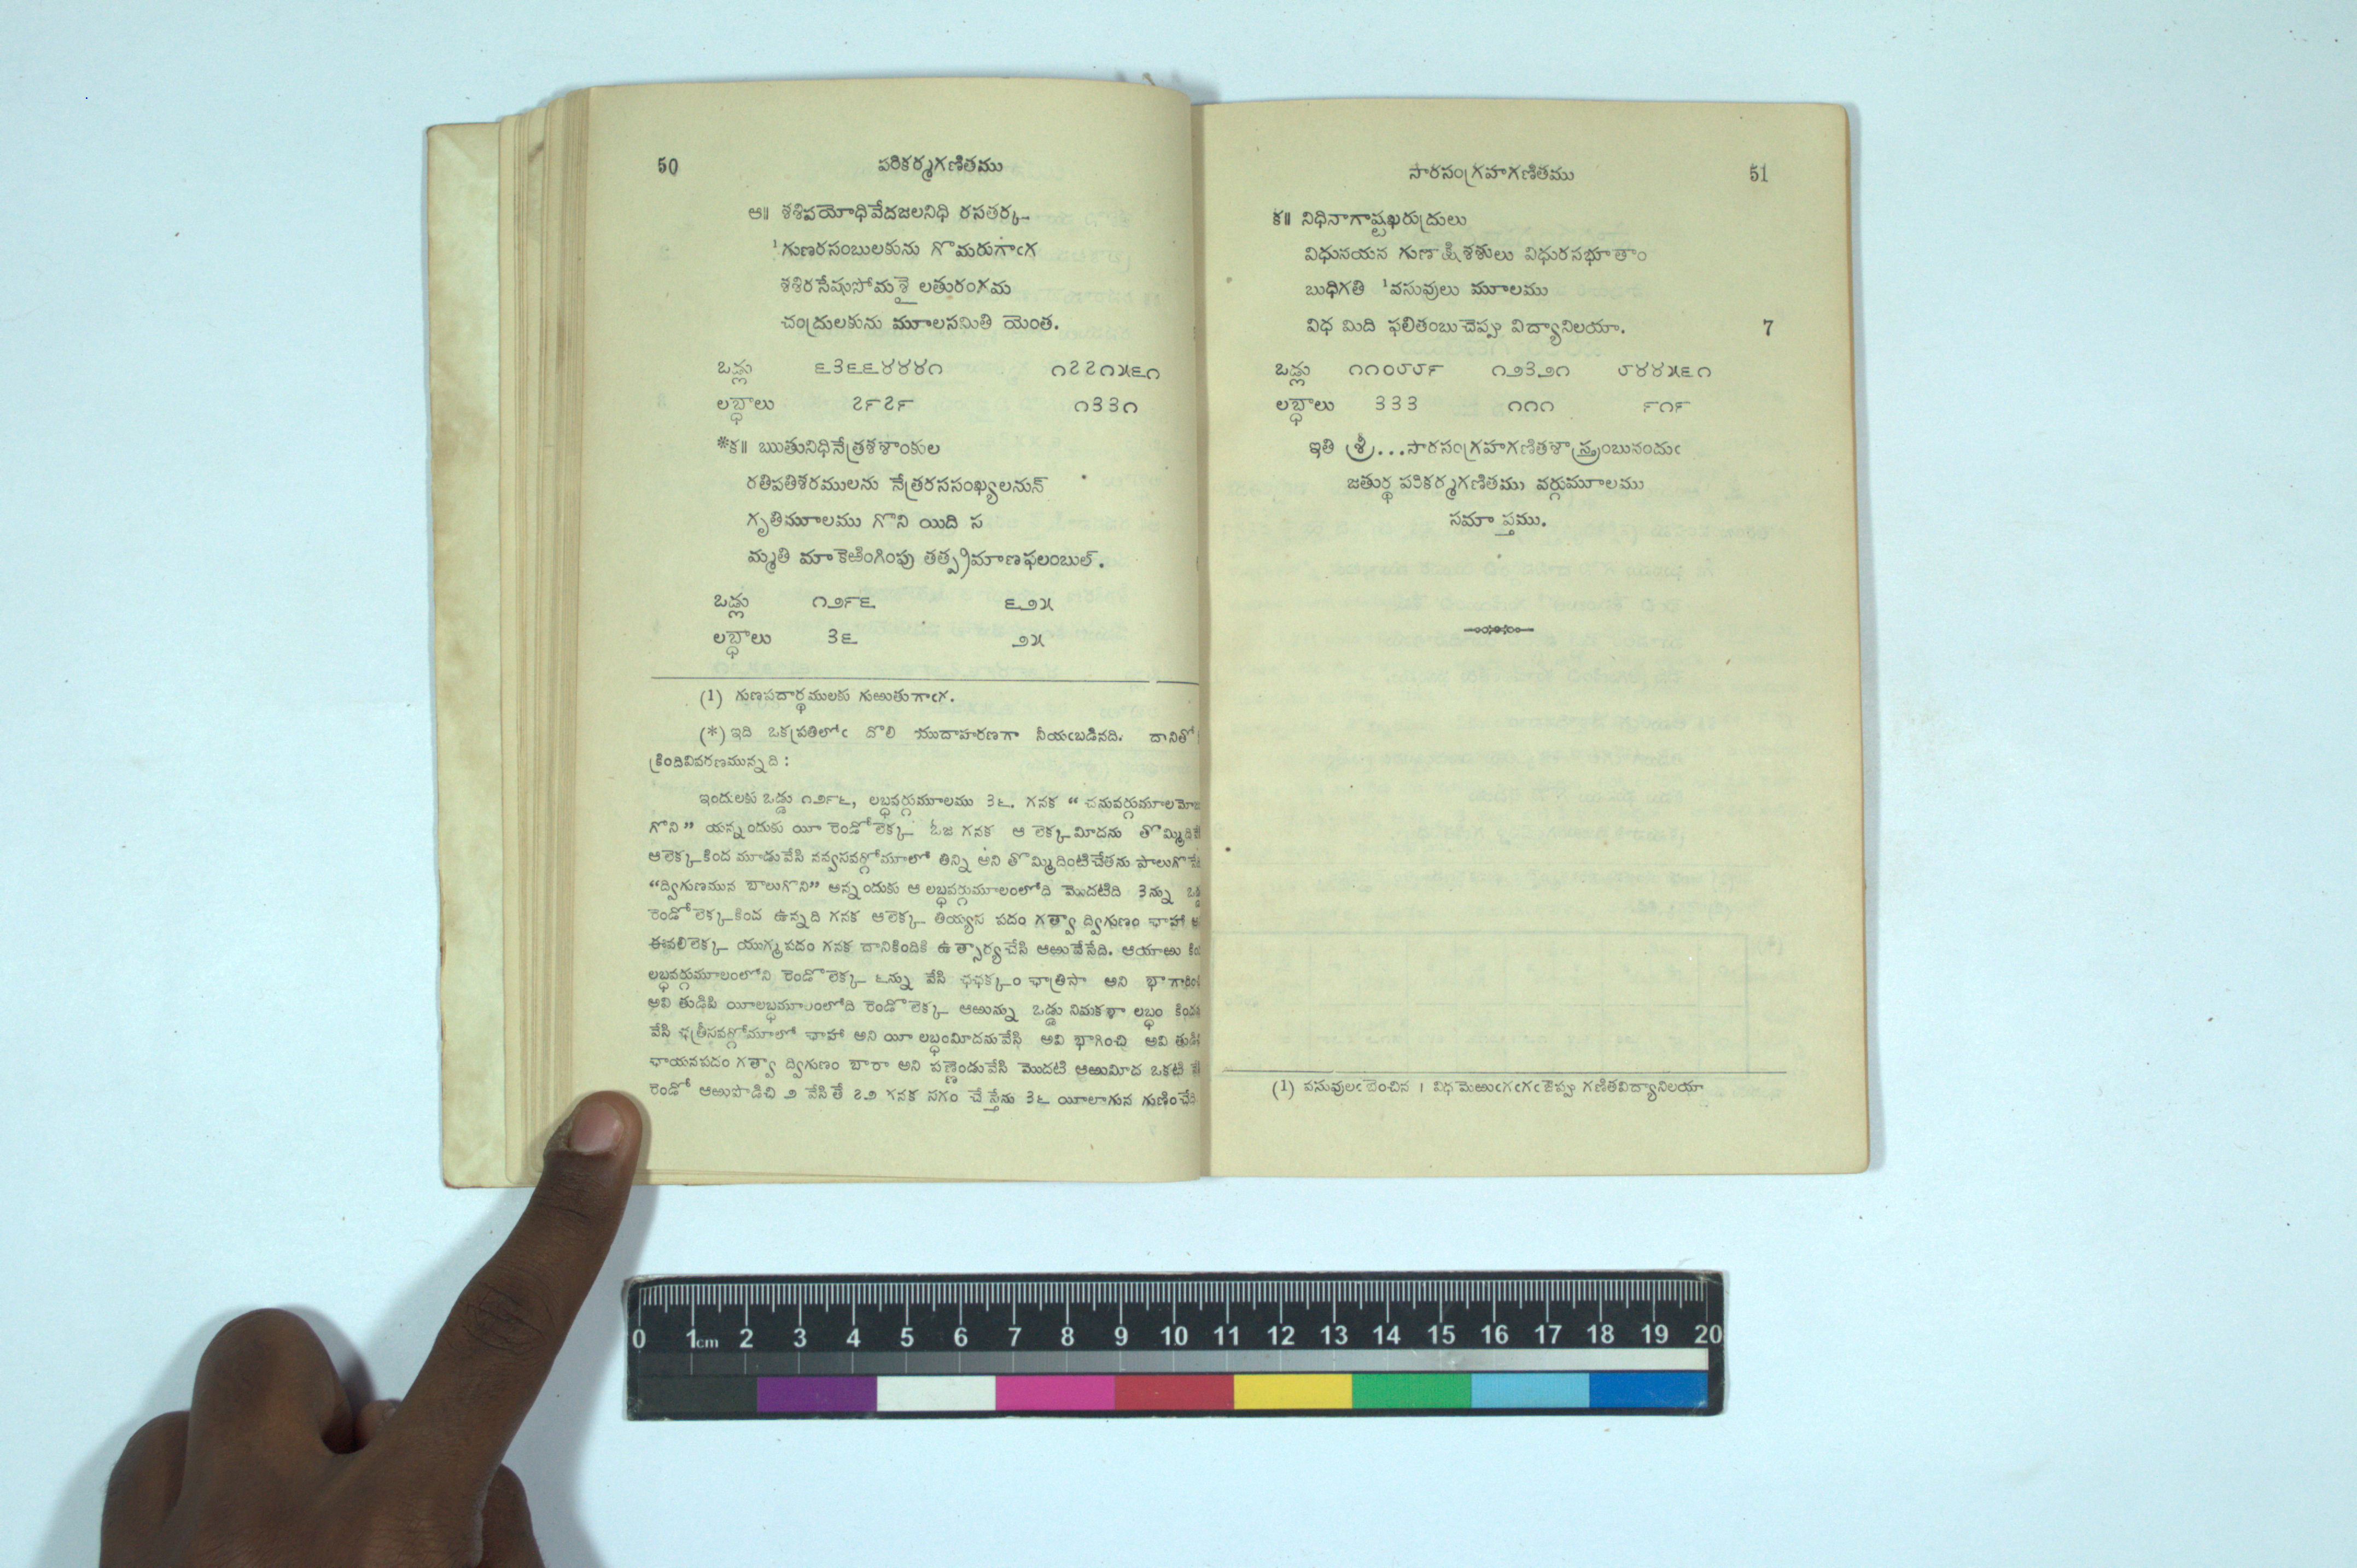 50
పరికర్మగణితము
ఆ॥ శశిపయోధివేదజలనిధి రసతర్క
¹గుణరసంబులకును గొమరుగాఁగ
శశిరసేషుసోమశైలతురంగమ
చంద్రులకును మూలసమితి యెంత.
ఒడ్లు ౬౩౬౬౪౪౪౧ ౧౭౭౧౫౬౧
లబ్ధాలు ౭౯౭౯ ౧౩౩౧
*క॥ ఋతునిధినేత్రశశాంకుల
రతిపతిశరములను నేత్రరససంఖ్యలనున్
గృతిమూలము గొని యిది స
మ్మతి మా కెఱింగింపు తత్ప్రమాణఫలంబుల్.
ఒడ్లు ౧౨౯౬ ౬౨౫
లబ్ధాలు ౩౬ ౨౫
(1) గుణపదార్థములకు గుఱుతుగాఁగ.
(*) ఇది ఒకప్రతిలోఁ దొలి యుదాహరణగా నీయఁబడినది. దానితో
క్రిందివివరణమున్నది :
ఇందులకు ఒడ్డు ౧౨౯౬, లబ్ధవర్గుమూలము ౩౬. గనక “ చనువర్గుమూలమోజ
గొని” యన్నందుకు యీ రెండో లెక్క ఓజ గనక ఆ లెక్క మీదను తొమ్మిది
ఆలెక్క కింద మూడువేసి నవ్వసవర్గోమూలో తిన్ని అని తొమ్మిదింటిచేతను పాలుగొ
“ద్విగుణమున బాలుగొని” అన్నందుకు ఆ లబ్ధవర్గుమూలంలోది మొదటిది ౩న్ను
రెండో లెక్క కింద ఉన్నది గనక ఆలెక్క తియ్యన పదం గత్వా ద్విగుణం ఛాహా
ఈవలిలెక్క యుగ్మపదం గనక దానికిందికి ఉత్సార్యచేసి ఆఱువేసేది. ఆయాఱు
లబ్ధవర్గుమూలంలోని రెండో లెక్క ౬న్ను వేసి ఛఛక్కం ఛాత్రిసా అని భాగారిం
అవి తుడిపి యీలబ్ధమూలంలోది రెండో లెక్క ఆఱున్ను ఒడ్డు నిమకళా లబ్ధం కింద
వేసి ఛత్రీసవర్గోమూలో ఛాహా అని యీ లబ్ధంమీదనువేసి అవి భాగించి అవి తుడి
ఛాయనపదం గత్వా ద్విగుణం బారా అని పన్నెండువేసి మొదటి ఆఱుమీద ఒకటి
రెండో ఆఱుపొడిచి ౨ వేసితే ౭౨ గనక సగం చేస్తేను ౩౬ యీలాగున గుణించేది
సారసంగ్రహగణితము
51
క॥ నిధినాగాష్టఖరుద్రులు
విధునయన గుణాక్షిశశులు విధురసభూతాం
బుధిగతి ¹వసువులు మూలము
విధ మిది ఫలితంబు చెప్పు విద్యానిలయా. 7
ఒడ్లు ౧౧౦౮౮౯ ౧౨౩౨౧ ౮౪౪౫౬౧
లబ్ధాలు ౩౩౩ ౧౧౧ ౯౧౯
ఇతి శ్రీ...సారసంగ్రహగణితశాస్త్రంబునందుఁ
జతుర్థ పరికర్మగణితము వర్గుమూలము
సమాప్తము.
(1) వసువులఁ బెంచిన । విధమెఱుఁగఁగఁ జెప్పు గణితవిద్యానిలయా
0 1cm 2 3 4 5 6 7 8 9 10 11 12 13 14 15 16 17 18 19 20